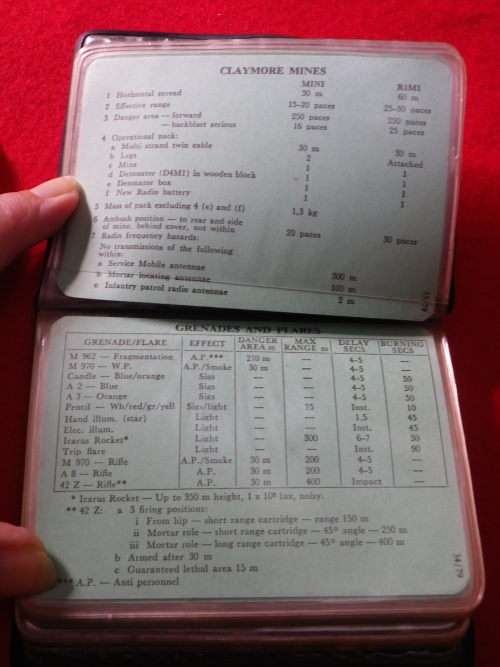 CLAYMORE MINES
MINI R1M1
1 Horizontal spread 30 m 60 m
2 Effective range 15–20 paces 25–50 paces
3 Danger area — forward 250 paces 250 paces
— backblast serious 16 paces 25 paces
4 Operational pack:
a Multi strand twin cable 30 m 30 m
b Legs 2 Attached
c Mine 1 1
d Detonator (D4M1) in wooden block 1 1
e Detonator box 1 1
f New Radio battery 1 1
5 Mass of pack excluding 4 (e) and (f) 1,3 kg
6 Ambush position — to rear and side
of mine, behind cover, not within 20 paces 30 paces
7 Radio frequency hazards:
No transmissions of the following
within:
a Service Mobile antennae 300 m
b Mortar locating antennae 100 m
c Infantry patrol radio antennae 2 m
GRENADES AND FLARES
GRENADE/FLARE EFFECT DANGER AREA m MAX RANGE m DELAY SECS BURNING SECS
M 962 — Fragmentation A.P.*** 210 m — 4–5 —
M 970 — W.P. A.P./Smoke 30 m — 4–5 —
Candle — Blue/orange Sigs — — 4–5 50
A 2 — Blue Sigs — — 4–5 50
A 3 — Orange Sigs — — 4–5 50
Pencil — Wh/red/gr/yell Sigs/light — 75 Inst. 10
Hand illum. (star) Light — — 1.5 45
Elec. illum. Light — — Inst. 45
Icarus Rocket* Light — 300 6–7 50
Trip flare Light — — Inst. 90
M 970 — Rifle A.P./Smoke 30 m 200 4–5 —
A 8 — Rifle A.P. 30 m 200 4–5 —
42 Z — Rifle** A.P. 30 m 400 Impact —
* Icarus Rocket — Up to 350 m height, 1 x 10⁶ lux, noisy.
** 42 Z: a 3 firing positions:
i From hip — short range cartridge — range 150 m
ii Mortar role — short range cartridge — 45° angle — 250 m
iii Mortar role — long range cartridge — 45° angle — 400 m
b Armed after 30 m
c Guaranteed lethal area 15 m
*** A.P. — Anti personnel
34/79